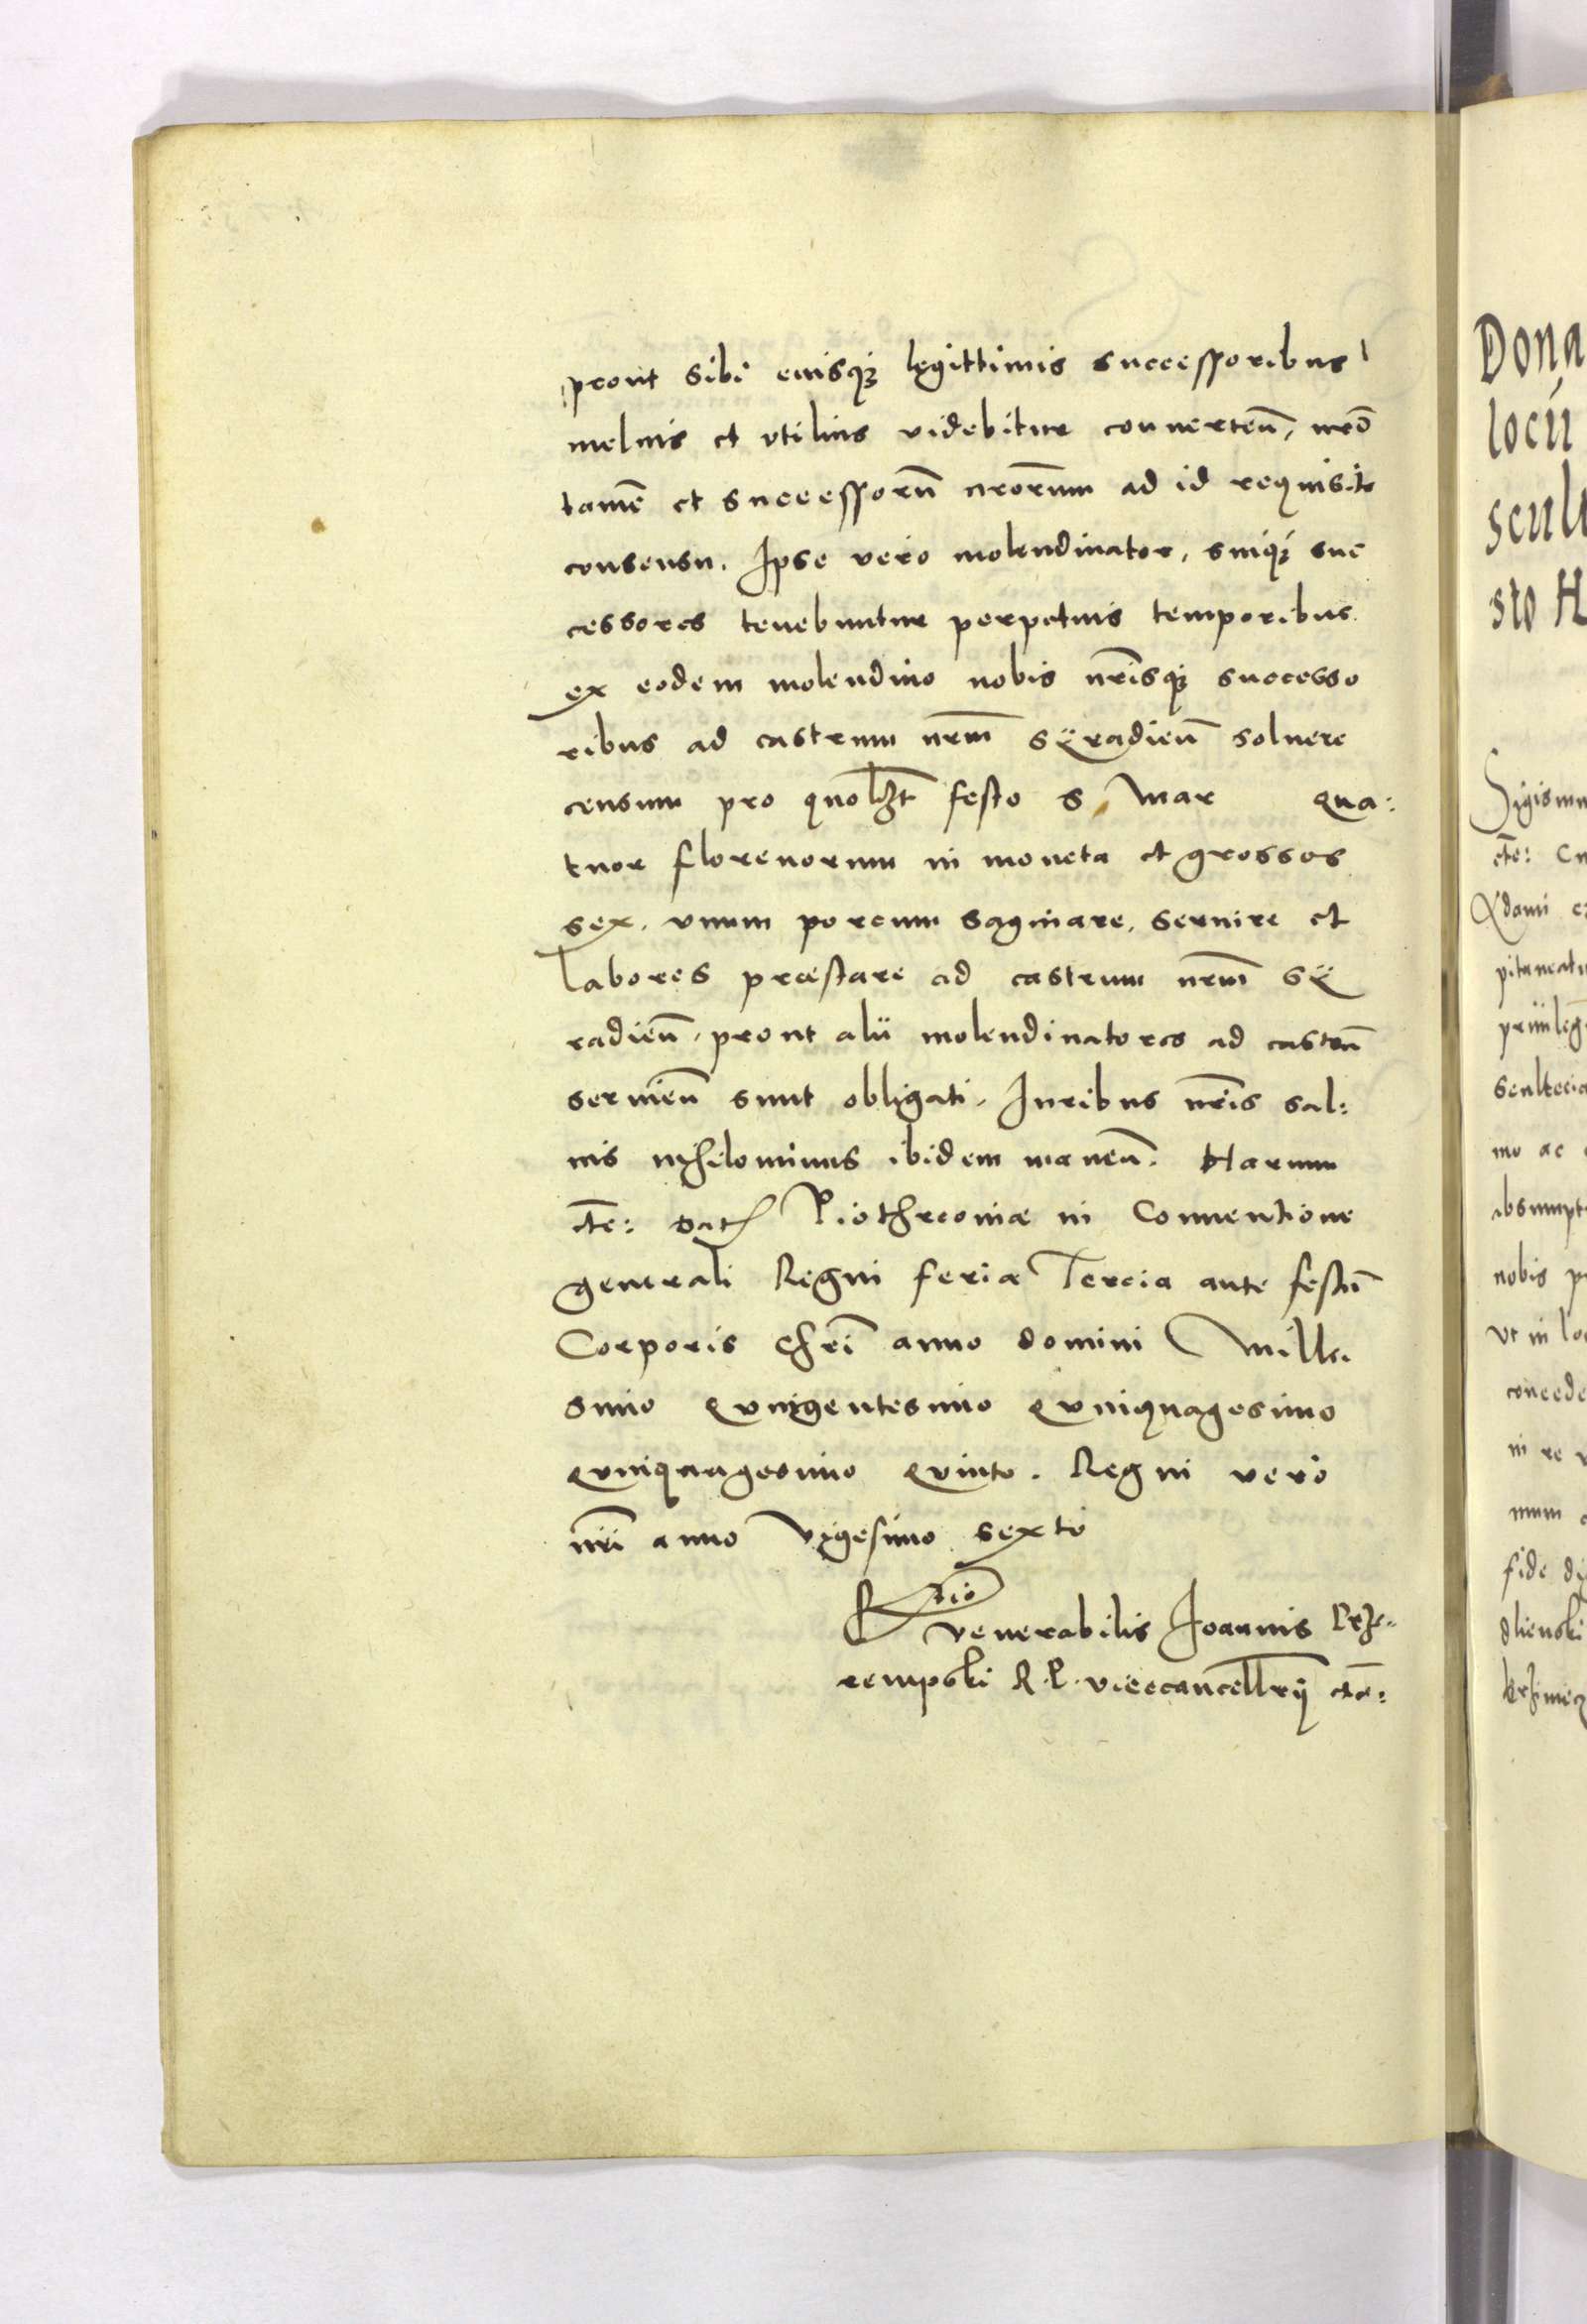 prout sibi eiusq₃ legittimis successoribus
melius et vtilius videbitur conuerteñ, nr̃o
tamẽ et successorũ nr̃orum ad id requisito
consensu. Ipse vero molendinator, suiq₃ suc
cessores tenebuntur perpetuis temporibus
ex eodem molendino nobis nr̃isq₃ successo
ribus ad castrum nr̃m Syradieñ soluere
censum pro quolʒt festo S Mar qua:
tuor florenorum in moneta et grossos
sex. vnum porcum saginare, seruire et
labores præstare ad castrum nr̃m Sy
radieñ, prout alii molendinatores ad castrũ
seruieñ sunt obligati. Iuribus nr̃is sal:
uis nihilominus ibidem maneñ. Harum
etc: Dat Piothrcouiæ in Conuentione
generali Regni feria Tercia ante festũ
Corporis Chri anno domini Mille.
simo quingentesimo quinquagesimo
quinquagesimo quinto. Regni vero
nr̃i anno vigesimo sexto
Rtio venerabilis Joannis Prze-
rempski R. P. vicecancellrij etc:
Dona
locii
scult
sto H
Sigismu
etc:
Adami
pitaneatu
priuileg
Scultecia
mo ac
absumpt
nobis
vt in lo
concede
in re
mum
fide di
dlienski